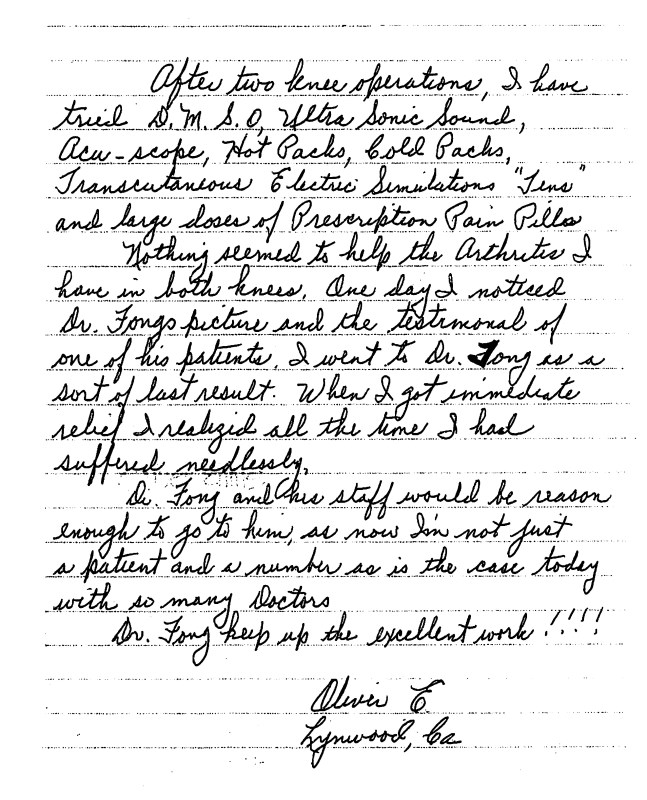 After two knee operations, I have
tried D.M.S.O, Ultra Sonic Sound,
Acu-scope, Hot Packs, Cold Packs,
Transcutaneous Electric Simulations "Tens"
and large doses of Prescription Pain Pills
Nothing seemed to help the Arthritis I
have in both knees. One day I noticed
Dr. Fongs picture and the testimonal of
one of his patients. I went to Dr. Fong as a
sort of last result. When I got immediate
relief I realizid all the time I had
suffered needlessly.
Dr. Fong and his staff would be reason
enough to go to him, as now I'm not just
a patient and a number as is the case today
with so many Doctors
Dr. Fong keep up the excellent work !!!!
Oliver E
Lynwood, Ca